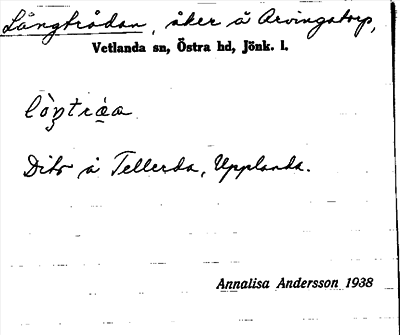 Långtrådan, åker å Arvingstorp,
Vetlanda sn, Östra hd, Jönk. l.
Dito å Tellerda, Upplanda.
Annalisa Andersson 1938